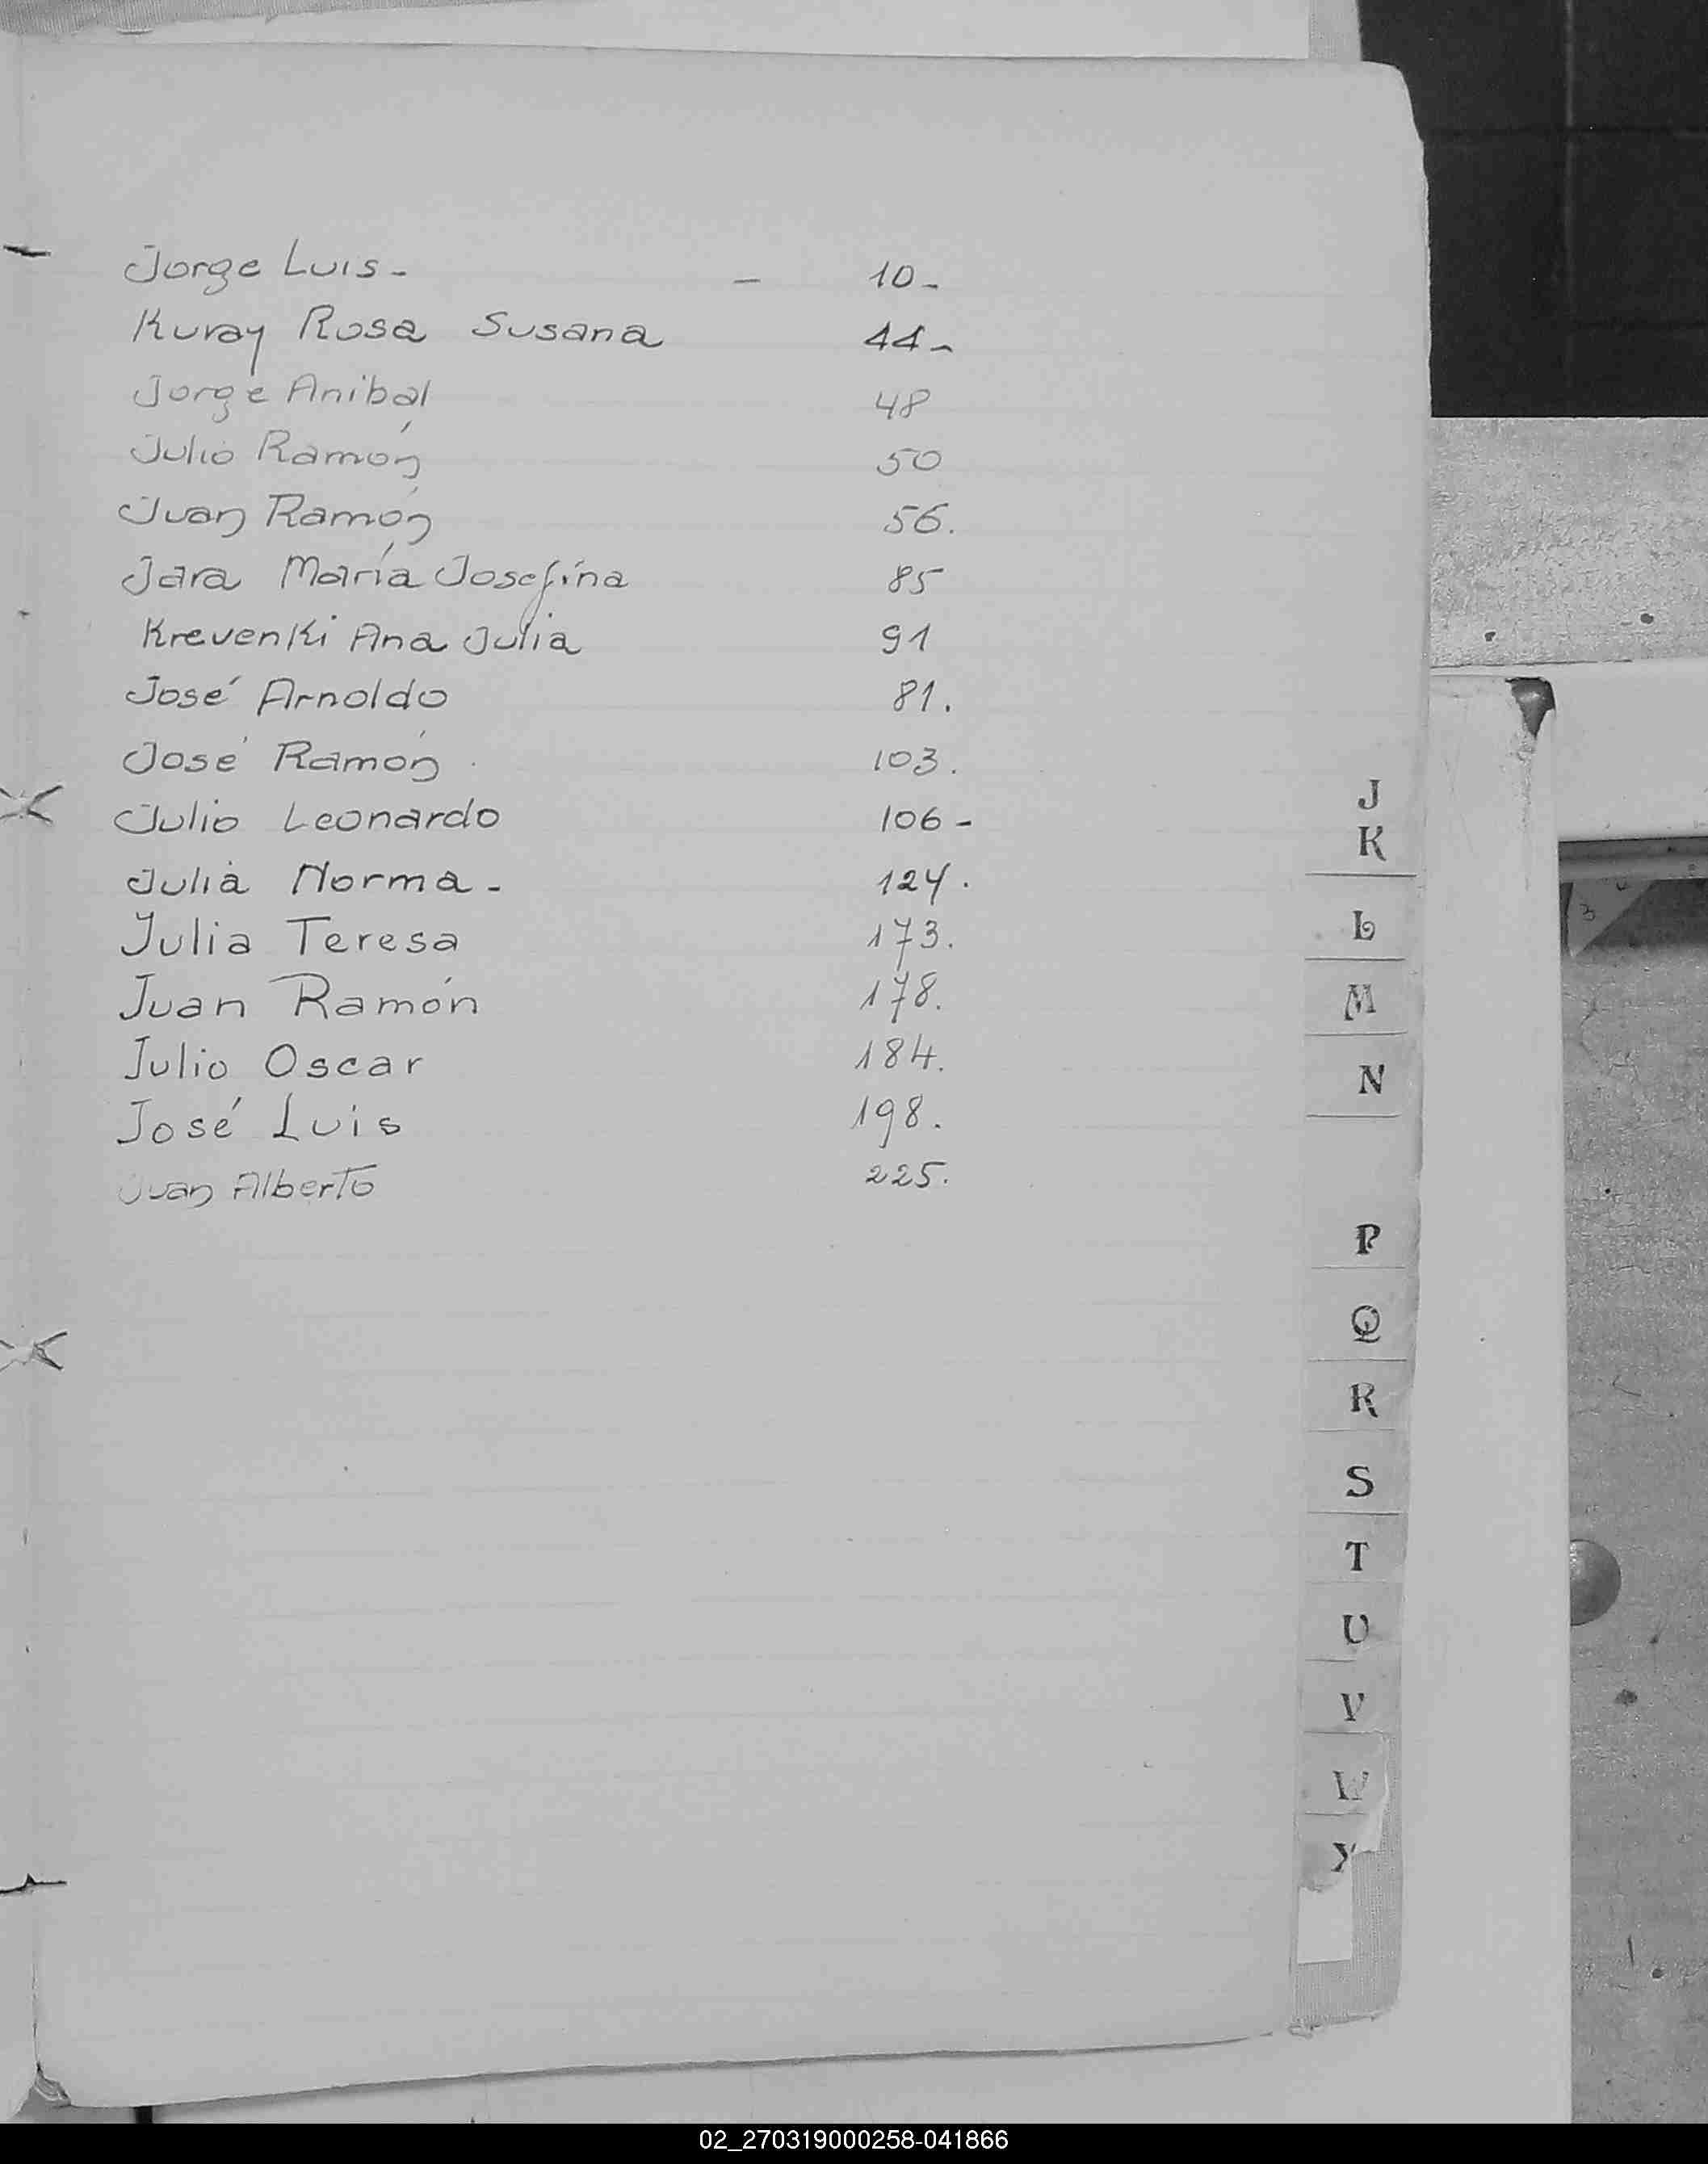 Jorge Luis - - 10 -
Kuray Rosa Susana 44 -
Jorge Anibal 48
Julio Ramón 50
Juan Ramón 56.
Jara María Josefina 85
Krevenki Ana Julia 91
José Arnoldo 81.
José Ramón 103.
Julio Leonardo 106 -
Julia Norma - 124.
Julia Teresa 173.
Juan Ramón 178.
Julio Oscar 184.
José Luis 198.
Juan Alberto 225.
J
K
L
M
N
P
Q
R
S
T
U
V
W
Y
3
02_270319000258-041866